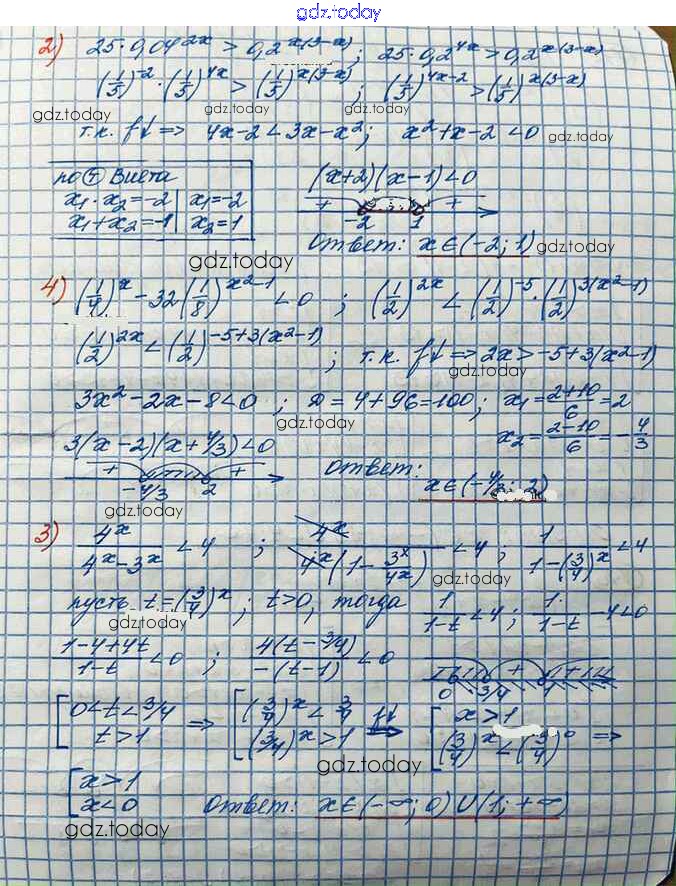 gdz.today
2) 25·0,04^2x > 0,2^x(3-x); 25·0,2^4x > 0,2^x(3-x)
(1/5)^-2 · (1/5)^4x > (1/5)^x(3-x); (1/5)^4x-2 > (1/5)^x(3-x)
gdz.today gdz.today gdz.today
т.к. f↓ => 4x-2 < 3x-x²; x²+x-2 < 0
gdz.today
по Т Виета
x₁·x₂=-2 | x₁=-2
x₁+x₂=-1 | x₂=1
(x+2)(x-1)<0
+ - +
-2 1
Ответ: x∈(-2; 1)
gdz.today gdz.today
4) (1/4)^x - 32(1/8)^x²-1 < 0 ; (1/2)^2x < (1/2)^-5 · (1/2)^3(x²-1)
gdz.today
(1/2)^2x < (1/2)^-5+3(x²-1) ; т.к. f↓ => 2x > -5+3(x²-1)
gdz.today
3x²-2x-8<0 ; D=4+96=100; x₁=2+10/6=2
gdz.today
x₂=2-10/6=-4/3
3(x-2)(x+4/3)<0
+ - +
-4/3 2
Ответ: x∈(-4/3; 2)
gdz.today
3) 4^x/4^x-3^x < 4 ; 4^x/4^x(1-3^x/4^x) < 4 ; 1/1-(3/4)^x < 4
gdz.today
пусть t=(3/4)^x ; t>0, тогда 1/1-t < 4 ; 1/1-t - 4 < 0
gdz.today
1-4+4t/1-t < 0 ; 4(t-3/4)/-(t-1) < 0
- + -
0 3/4 1
[0<t<3/4 => [(3/4)^x < 3/4 f↓ => [x>1
[t>1 [(3/4)^x > 1 [(3/4)^x < (3/4)^0 =>
gdz.today
[x>1
[x<0 Ответ: x∈(-∞; 0)∪(1; +∞)
gdz.today